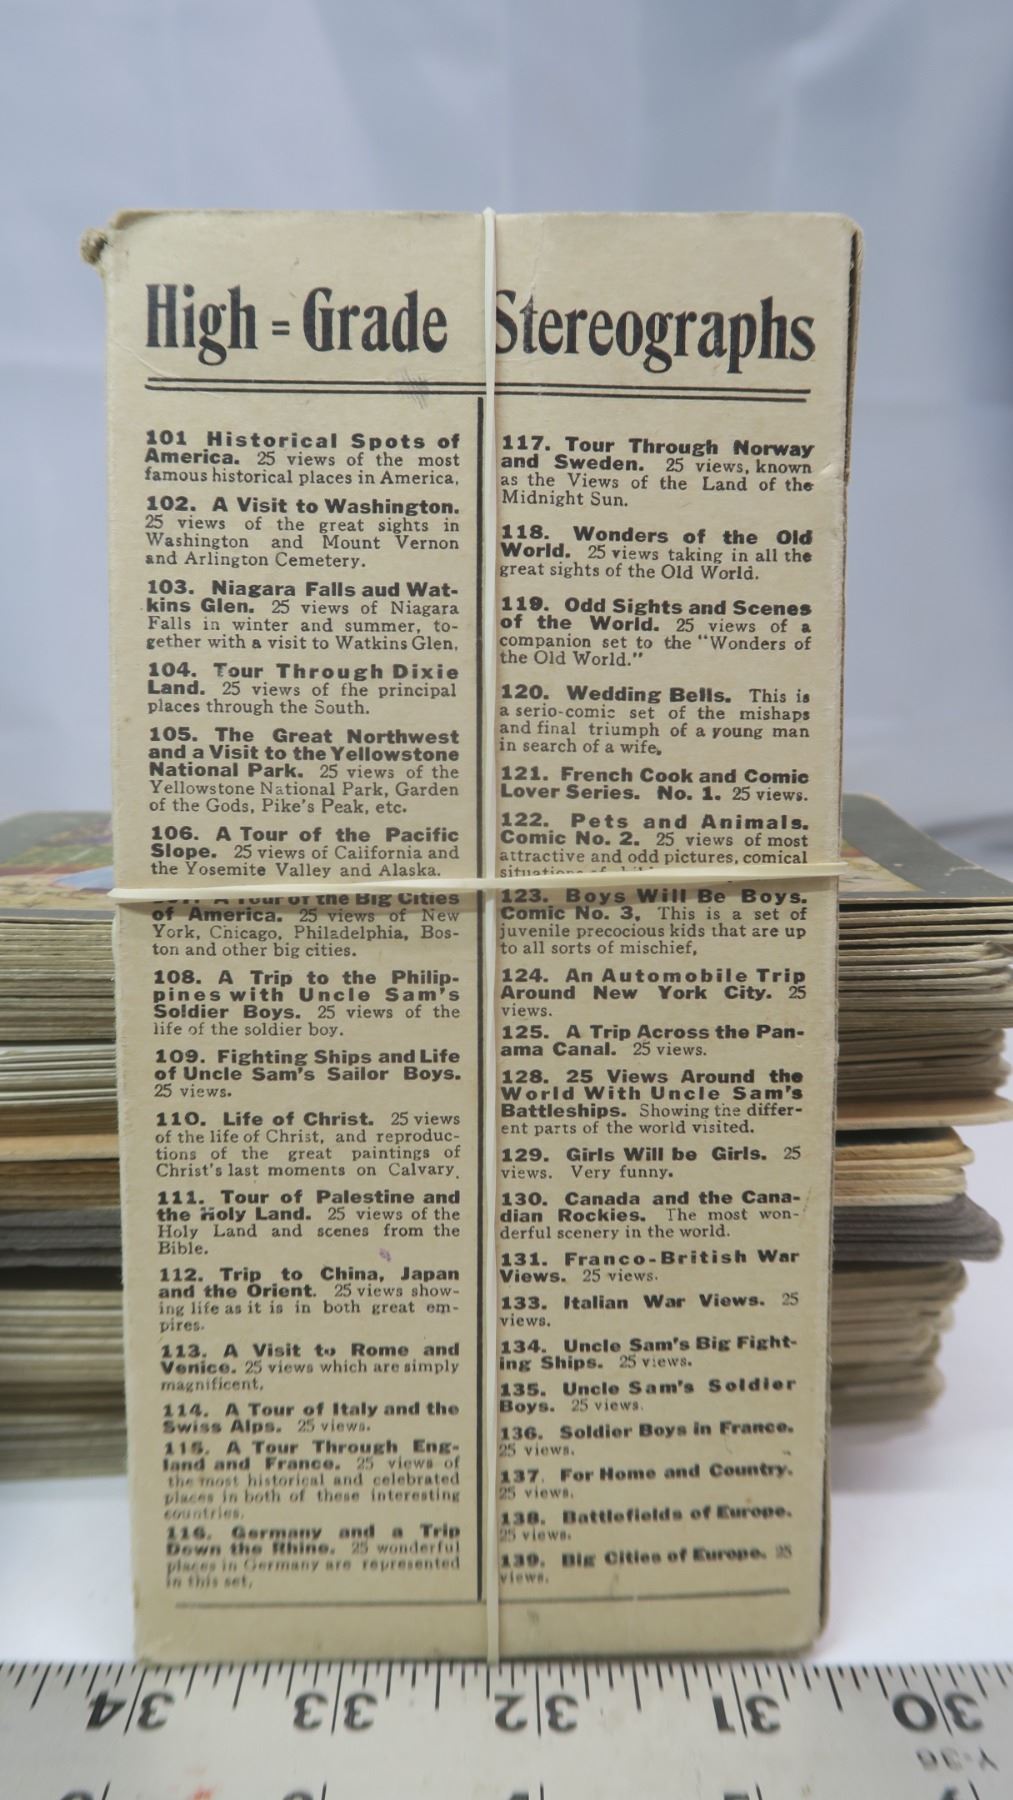 High = Grade Stereographs
101 Historical Spots of
America. 25 views of the most
famous historical places in America,
102. A Visit to Washington.
25 views of the great sights in
Washington and Mount Vernon
and Arlington Cemetery.
103. Niagara Falls aud Wat-
kins Glen. 25 views of Niagara
Falls in winter and summer, to-
gether with a visit to Watkins Glen,
104. Tour Through Dixie
Land. 25 views of fhe principal
places through the South.
105. The Great Northwest
and a Visit to the Yellowstone
National Park. 25 views of the
Yellowstone National Park, Garden
of the Gods, Pike's Peak, etc.
106. A Tour of the Pacific
Slope. 25 views of California and
the Yosemite Valley and Alaska.
A Tour of the Big Cities
of America. 25 views of New
York, Chicago, Philadelphia, Bos-
ton and other big cities.
108. A Trip to the Philip-
pines with Uncle Sam's
Soldier Boys. 25 views of the
life of the soldier boy.
109. Fighting Ships and Life
of Uncle Sam's Sailor Boys.
25 views.
110. Life of Christ. 25 views
of the life of Christ, and reproduc-
tions of the great paintings of
Christ's last moments on Calvary.
111. Tour of Palestine and
the Holy Land. 25 views of the
Holy Land and scenes from the
Bible.
112. Trip to China, Japan
and the Orient. 25 views show-
ing life as it is in both great em-
pires.
113. A Visit to Rome and
Venice. 25 views which are simply
magnificent,
114. A Tour of Italy and the
Swiss Alps. 25 views.
115. A Tour Through Eng-
land and France. 25 views of
the most historical and celebrated
places in both of these interesting
countries.
116. Germany and a Trip
Down the Rhine. 25 wonderful
places in Germany are represented
in this set.
117. Tour Through Norway
and Sweden. 25 views, known
as the Views of the Land of the
Midnight Sun.
118. Wonders of the Old
World. 25 views taking in all the
great sights of the Old World.
119. Odd Sights and Scenes
of the World. 25 views of a
companion set to the "Wonders of
the Old World."
120. Wedding Bells. This is
a serio-comic set of the mishaps
and final triumph of a young man
in search of a wife,
121. French Cook and Comic
Lover Series. No. 1. 25 views.
122. Pets and Animals.
Comic No. 2. 25 views of most
attractive and odd pictures, comical
situations of
123. Boys Will Be Boys.
Comic No. 3, This is a set of
juvenile precocious kids that are up
to all sorts of mischief,
124. An Automobile Trip
Around New York City. 25
views.
125. A Trip Across the Pan-
ama Canal. 25 views.
128. 25 Views Around the
World With Uncle Sam's
Battleships. Showing the differ-
ent parts of the world visited.
129. Girls Will be Girls. 25
views. Very funny.
130. Canada and the Cana-
dian Rockies. The most won-
derful scenery in the world.
131. Franco-British War
Views. 25 views.
133. Italian War Views. 25
views.
134. Uncle Sam's Big Fight-
ing Ships. 25 views.
135. Uncle Sam's Soldier
Boys. 25 views.
136. Soldier Boys in France.
25 views.
137. For Home and Country.
25 views.
138. Battlefields of Europe.
25 views.
139. Big Cities of Europe. 25
views.
34 33 32 31 30
Y-36